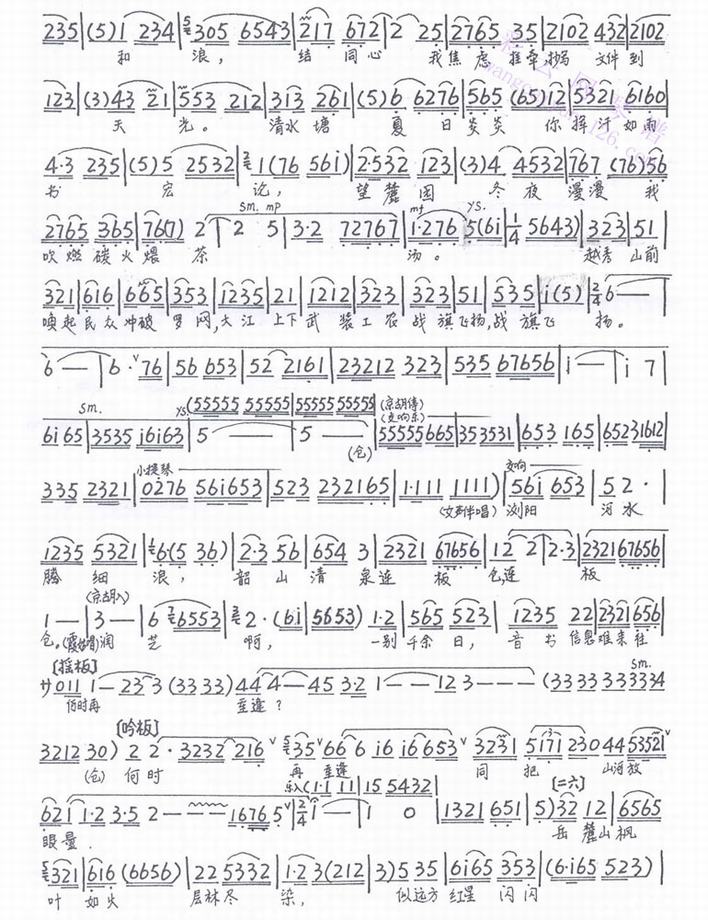 235|(5)1 234|305 6543|217 672|2 25|2765 35|2102 432|2102
和 浪， 结 同心 我焦虑 推牵 文件到
123|(3)43 21|553 212|313 261|(5)6 6276|565 (65)12|5321 6160
天 光。 清水塘 夏 日炎炎 你挥汗如雨
4·3 235|(5)5 2532|1(76 56i)|2·532 123|(3)4 4532|767 (76)56
书 宏 论， 望麓园 冬夜漫漫 我
sm. mp mf ys.
2765 365|767(7) 2|2 5|3·2 72767|1·276 5(6i|1/4 5643)|323|51
吹燃碳火煨茶 汤。 越秀山前
321|616|6665|353|1235|21|1212|323|323|51|535|i(5)|2/4 6—
唤起民众冲破罗网,大江上下武装工农战旗飞扬,战旗飞 扬。
6—|6·76|56 653|52 2161|23212 323|535 67656|i—|i 7
sm. ys. (55555 5555|55555 55555 (京胡停) (交响乐)
6i 65|3535 i6i63|5 —|5 —|55555 665|353531|653 165|65231612
(仓)
小提琴 交响
335 2321|0276 56i653|523 232165|1·111 1111)|56i 653|52·
(女声伴唱) 浏阳 河水
1235 5321|6(5 36)|2·3 56|654 3|2321 67656|12 2|2·3|232167656
腾细浪， 韶山清泉连板仓连 板
(京胡入)
1—|3—|6 6553|2·(6i|5653)|1·2|565 523|1235 22|2321 656
仓。(霞姑唱)润 芝 啊， 一别千余日，音书信息难来往
[摇板] sm.
サ011 1—23 3(33 33)44 4—45 3·2 1——12 3———(33 33 33 3334
何时再 重逢？
[吟板]
3212 30) 2 2·3232 216 35 66 6 i6 i6 653 3231 5171 230 44 53521
(仓) 何时 再重逢 同把 山河放
乐入(1·1 11|15 5432 [二六]
621 1·2 3·5 2———1676 5|2/4 1—|1 0|1321 651|5)32 12|6565
眼量. 岳麓山枫
321|616 (6656)|22 5332|1·2 3(212|3)5 35|6i65 353|(6·i65 523)|
叶如火 层林尽 染， 似远方红星闪闪